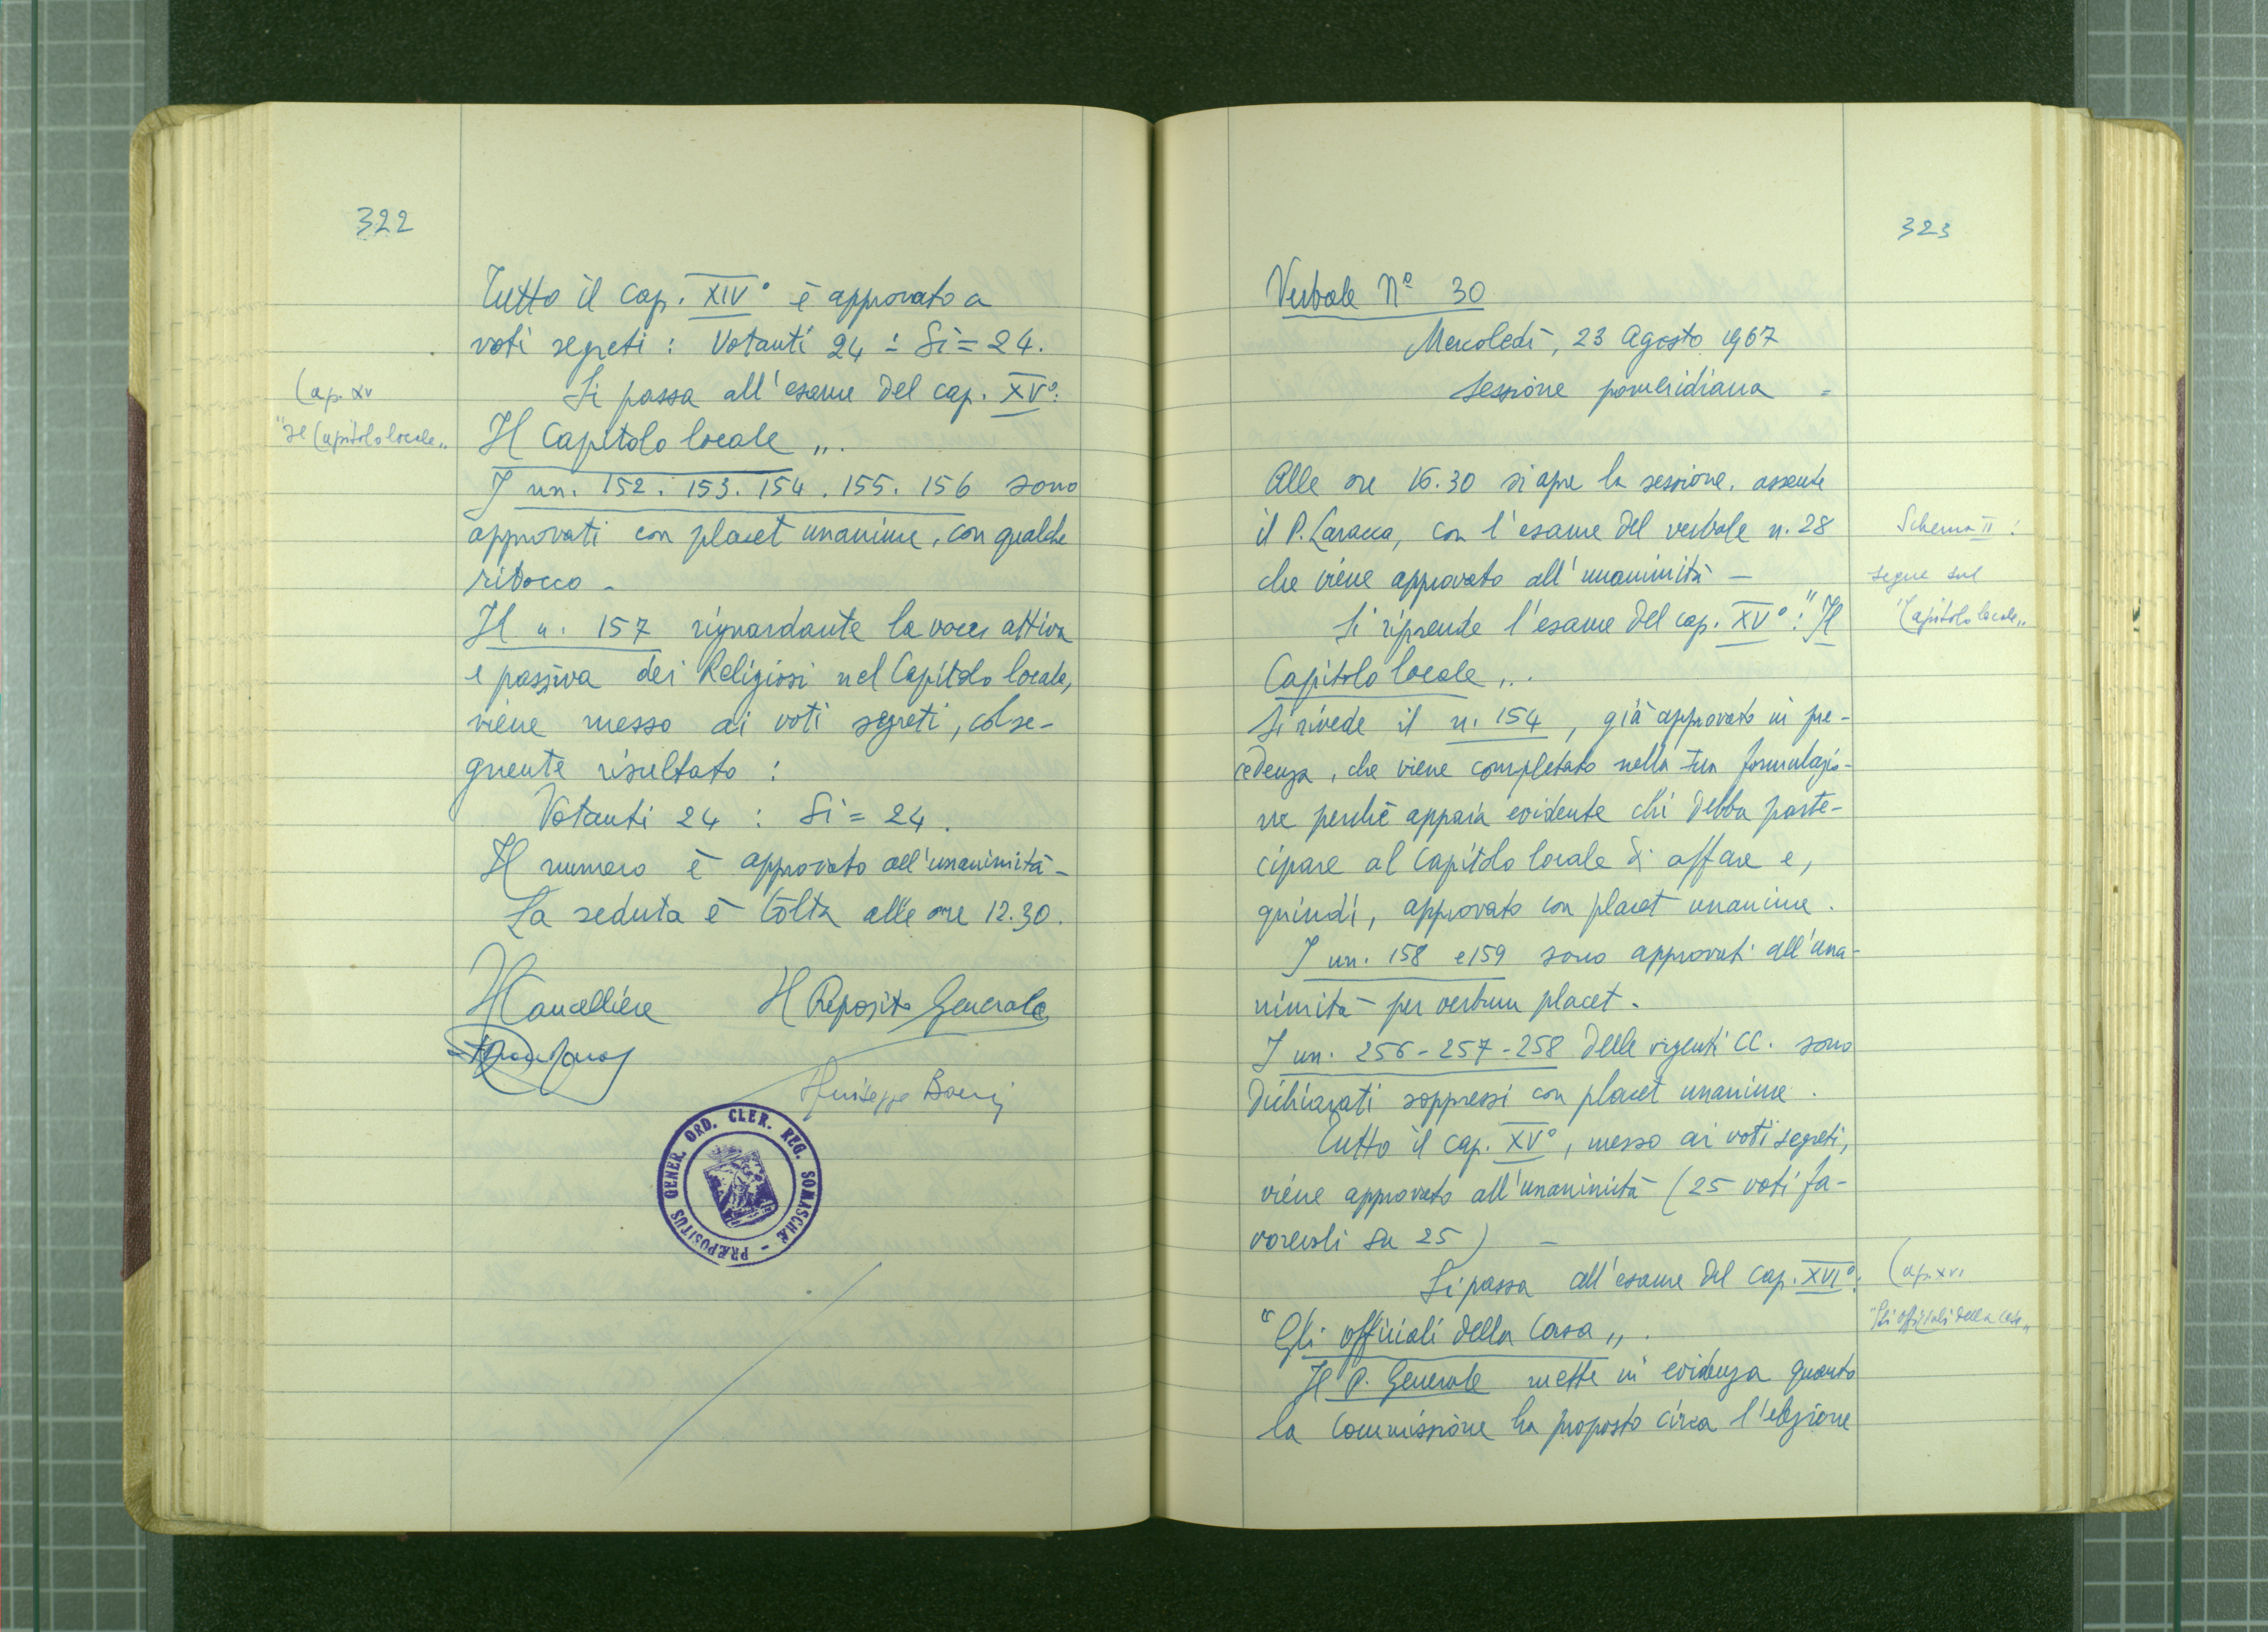 322
Tutto il cap. XIV° è approvato a
voti segreti: Votanti 24 : Si = 24.
Cap. XV
"Il Capitolo locale„
Si passa all'esame del cap. XV°:
Il Capitolo locale„.
I nn. 152. 153. 154. 155. 156 sono
approvati con placet unanime, con qualche
ritocco -
Il n. 157 riguardante la voce attiva
e passiva dei Religiosi nel Capitolo locale,
viene messo ai voti segreti, col se-
guente risultato :
Votanti 24 : Si = 24.
Il numero è approvato all'unanimità -
La seduta è tolta alle ore 12.30.
Il Cancelliere Il Preposito Generale
Giuseppe
PRÆPOSITUS GENER. ORD. CLER. REG. SOMASCHÆ -
323
Verbale N° 30
Mercoledì, 23 Agosto 1967
sessione pomeridiana =
Alle ore 16.30 si apre la sessione, assente
il P. Laracca, con l'esame del verbale n. 28
che viene approvato all'unanimità -
Schema II :
segue sul
"Capitolo locale„
Si riprende l'esame del cap. XV°: "Il
Capitolo locale„.
Si rivede il n. 154, già approvato in pre-
cedenza, che viene completato nella sua formulazio-
ne perchè appaia evidente chi debba parte-
cipare al Capitolo locale di affare e,
quindi, approvato con placet unanime.
I nn. 158 e 159 sono approvati all'una-
nimità per verbum placet.
I nn. 256 - 257 - 258 delle vigenti CC. sono
dichiarati soppressi con placet unanime.
Tutto il cap. XV°, messo ai voti segreti,
viene approvato all'unanimità (25 voti fa-
vorevoli su 25) -
Cap. XVI
"Gli officiali della casa„
Si passa all'esame del cap. XVI°:
"Gli officiali della Casa„.
Il P. Generale mette in evidenza quanto
la Commissione ha proposto circa l'elezione